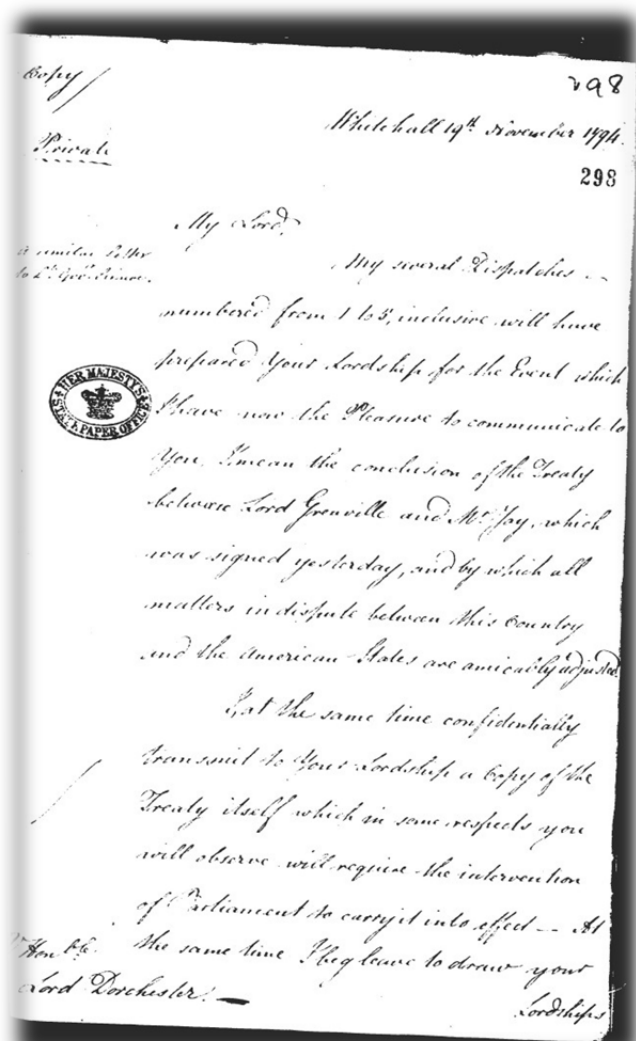 Copy
298
Private
Whitehall 19th November 1794.
298
My Lord,
A similar Letter
to Lt. Govr. Simcoe.
My several Dispatches
numbered from 1 to 5, inclusive will have
prepared Your Lordship for the Event which
I have now the Pleasure to communicate to
You, I mean the conclusion of the Treaty
between Lord Grenville and Mr. Jay, which
was signed yesterday, and by which all
matters in dispute between this Country
and the American States are amicably adjusted.
I, at the same time confidentially
transmit to Your Lordship a Copy of the
Treaty itself which in some respects you
will observe will require the intervention
of Parliament to carry it into effect — At
the same time I beg leave to draw your
Lordships
Honble.
Lord Dorchester. —
HER MAJESTY'S
STATE PAPER OFFICE